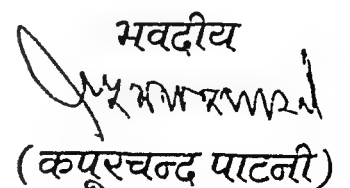 भवदीय
(कपूरचन्द पाटनी)